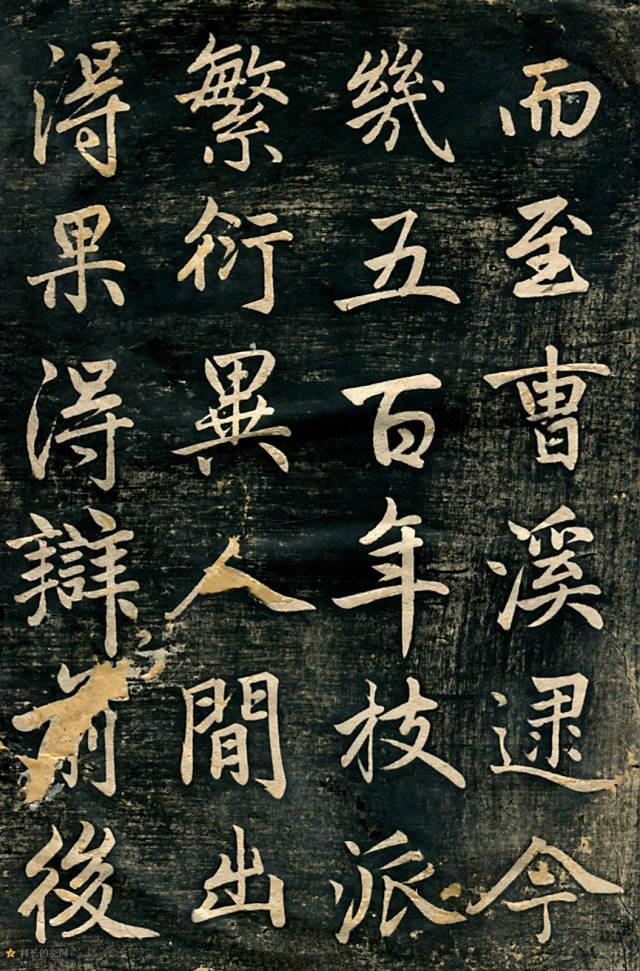 而至曹溪逮今
幾五百年枝派
繁衍異人間出
得果得辯前後
科长的空间